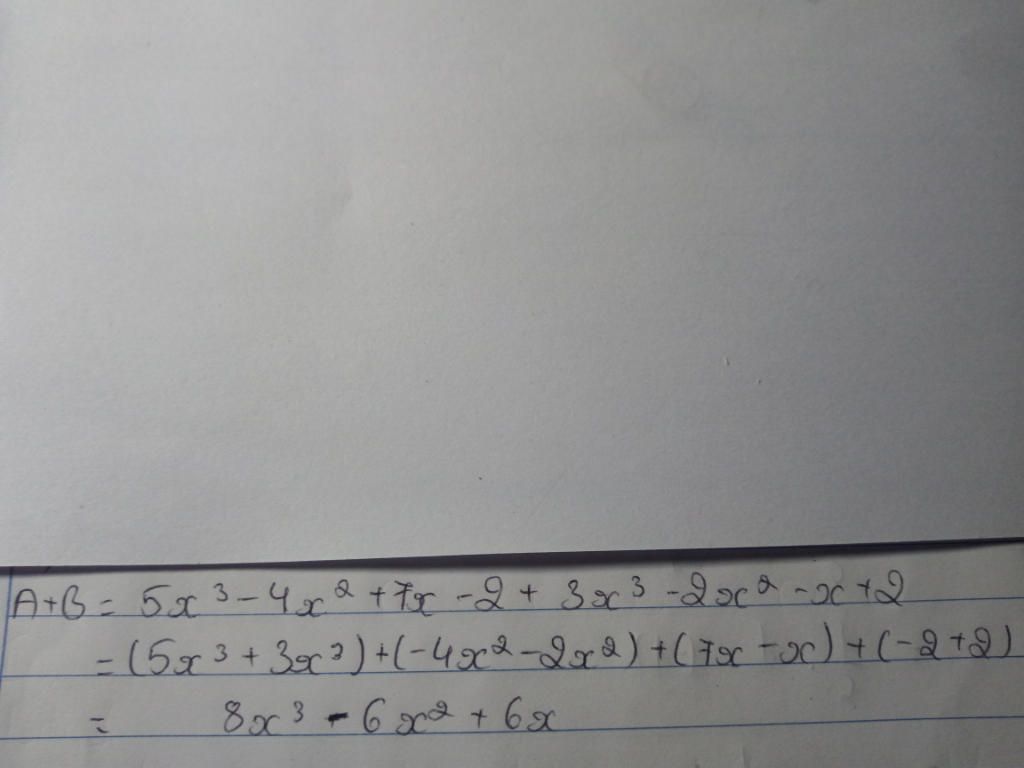 A+B = 5x³ - 4x² + 7x - 2 + 3x³ - 2x² - x + 2
= (5x³ + 3x³) + (-4x² - 2x²) + (7x - x) + (-2 + 2)
= 8x³ - 6x² + 6x